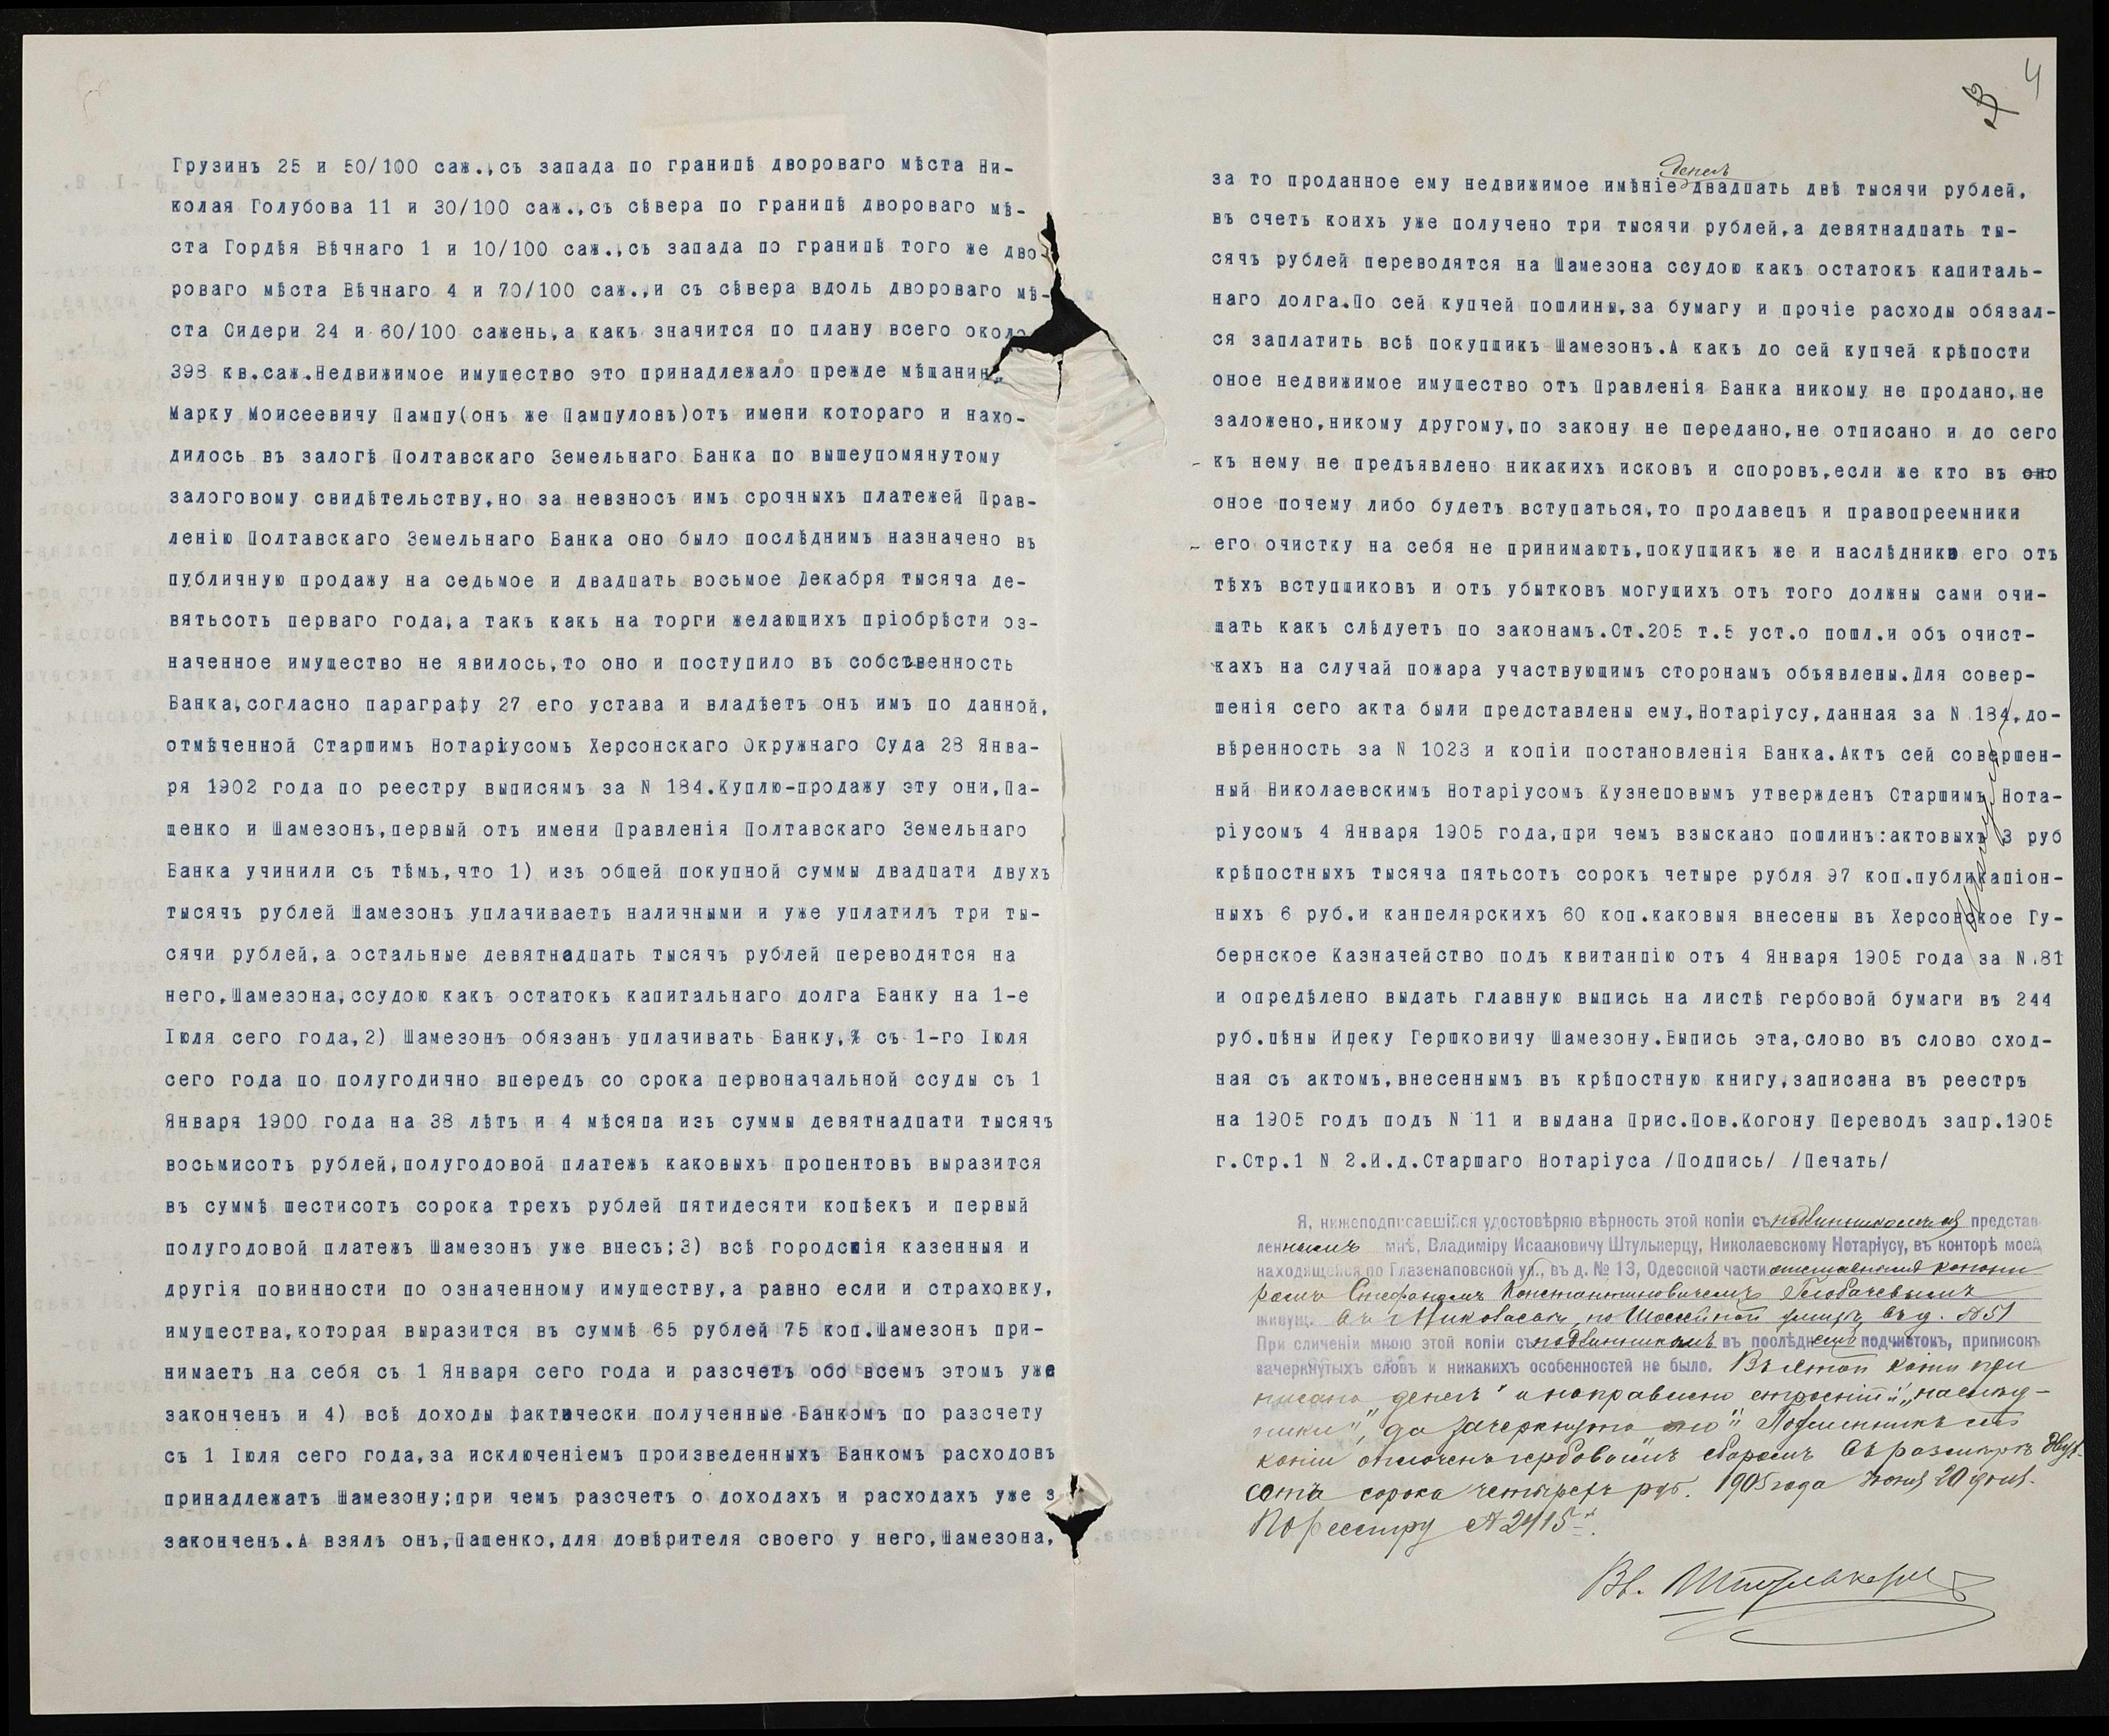 Грузинъ 25 и 50/100 саж.,съ запада по границѣ двороваго мѣста Ни-
колая Голубова 11 и 30/100 саж.,съ сѣвера по границѣ двороваго мѣ-
ста Гордѣя Вѣчнаго 1 и 10/100 саж.,съ запада по границѣ того же дво-
роваго мѣста Вѣчнаго 4 и 70/100 саж.,и съ сѣвера вдоль двороваго мѣ-
ста Сидери 24 и 60/100 сажень,а какъ значится по плану всего около
398 кв.саж.Недвижимое имущество это принадлежало прежде мѣщанину
Марку Моисеевичу Пампу(онъ же Пампуловъ)отъ имени котораго и нахо-
дилось въ залогѣ Полтавскаго Земельнаго Банка по вышеупомянутому
залоговому свидѣтельству,но за невзносъ имъ срочныхъ платежей Прав-
ленію Полтавскаго Земельнаго Банка оно было послѣднимъ назначено въ
публичную продажу на седьмое и двадцать восьмое Декабря тысяча де-
вятьсотъ перваго года,а такъ какъ на торги желающихъ пріобрѣсти оз-
наченное имущество не явилось,то оно и поступило въ собственность
Банка,согласно параграфу 27 его устава и владѣетъ онъ имъ по данной,
отмѣченной Старшимъ Нотаріусомъ Херсонскаго Окружнаго Суда 28 Янва-
ря 1902 года по реестру выписямъ за N 184.Куплю-продажу эту они,Па-
щенко и Шамезонъ,первый отъ имени Правленія Полтавскаго Земельнаго
Банка учинили съ тѣмъ,что 1) изъ общей покупной суммы двадцати двухъ
тысячъ рублей Шамезонъ уплачиваетъ наличными и уже уплатилъ три ты-
сячи рублей,а остальные девятнадцать тысячъ рублей переводятся на
него,Шамезона,ссудою какъ остатокъ капитальнаго долга Банку на 1-е
Іюля сего года,2) Шамезонъ обязанъ уплачивать Банку,% съ 1-го Іюля
сего года по полугодично впередъ со срока первоначальной ссуды съ 1
Января 1900 года на 38 лѣтъ и 4 мѣсяца изъ суммы девятнадцати тысячъ
восьмисотъ рублей,полугодовой платежъ каковыхъ процентовъ выразится
въ суммѣ шестисотъ сорока трехъ рублей пятидесяти копѣекъ и первый
полугодовой платежъ Шамезонъ уже внесъ;3) всѣ городскія казенныя и
другія повинности по означенному имуществу,а равно если и страховку,
имущества,которая выразится въ суммѣ 65 рублей 75 коп.Шамезонъ при-
нимаетъ на себя съ 1 Января сего года и разсчетъ обо всемъ этомъ уже
законченъ и 4) всѣ доходы фактически полученные Банкомъ по разсчету
съ 1 Іюля сего года,за исключеніемъ произведенныхъ Банкомъ расходовъ
принадлежатъ Шамезону;при чемъ разсчетъ о доходахъ и расходахъ уже з
законченъ.А взялъ онъ,Пащенко,для довѣрителя своего у него,Шамезона,
4
денегъ
за то проданное ему недвижимое имѣніе двадцать двѣ тысячи рублей,
въ счетъ коихъ уже получено три тысячи рублей,а девятнадцать ты-
сячъ рублей переводятся на Шамезона ссудою какъ остатокъ капиталь-
наго долга.По сей купчей пошлины,за бумагу и прочіе расходы обязал-
ся заплатить всѣ покупщикъ Шамезонъ.А какъ до сей купчей крѣпости
оное недвижимое имущество отъ Правленія Банка никому не продано,не
заложено,никому другому,по закону не передано,не отписано и до сего
къ нему не предъявлено никакихъ исковъ и споровъ,если же кто въ оно
оное почему либо будетъ вступаться,то продавецъ и правопреемники
его очистку на себя не принимаютъ,покупщикъ же и наслѣдники его отъ
тѣхъ вступщиковъ и отъ убытковъ могущихъ отъ того должны сами очи-
щать какъ слѣдуетъ по законамъ.Ст.205 т.5 уст.о пошл.и объ очист-
кахъ на случай пожара участвующимъ сторонамъ объявлены.Для совер-
шенія сего акта были представлены ему,Нотаріусу,данная за N 184,до-
вѣренность за N 1023 и копіи постановленія Банка.Актъ сей совершен-
ный Николаевскимъ Нотаріусомъ Кузнецовымъ утвержденъ Старшимъ Нота-
ріусомъ 4 Января 1905 года,при чемъ взыскано пошлинъ:актовыхъ 3 руб
крѣпостныхъ тысяча пятьсотъ сорокъ четыре рубля 97 коп.публикаціон-
ныхъ 6 руб.и канцелярскихъ 60 коп.каковыя внесены въ Херсонское Гу-
бернское Казначейство подъ квитанцію отъ 4 Января 1905 года за N.81
и опредѣлено выдать главную выпись на листѣ гербовой бумаги въ 244
руб.цѣны Ицеку Гершковичу Шамезону.Выпись эта,слово въ слово сход-
ная съ актомъ,внесеннымъ въ крѣпостную книгу,записана въ реестръ
на 1905 годъ подъ N 11 и выдана Прис.Пов.Когону Переводъ запр.1905
г.Стр.1 N 2.И.д.Старшаго Нотаріуса /Подпись/ /Печать/
Я, нижеподписавшійся удостовѣряю вѣрность этой копіи съ подлинникомъ ея представ
леннымъ мнѣ, Владиміру Исааковичу Штулькерцу, Николаевскому Нотаріусу, въ конторѣ моей,
находящейся по Глазенаповской ул., въ д. № 13, Одесской части отставнымъ
Стефаномъ Константиновичемъ
живущ. въ Николаевѣ, по Шоссейной улицѣ, въ д. №51
При сличеніи мною этой копіи съ подлинникомъ въ послѣднемъ подчистокъ, приписокъ
зачеркнутыхъ словъ и никакихъ особенностей не было. Въ этой копіи при
писано „денегъ“ и исправлено „наслѣд-
ники“, да зачеркнуто „оно“. Подлинникъ сей
копіи оплоченъ гербовымъ сборомъ въ размѣрѣ двух
сотъ сорока четырехъ руб. 1905 года Іюня 20 дня.
По реестру №2415.
Вл. Штулькерцъ